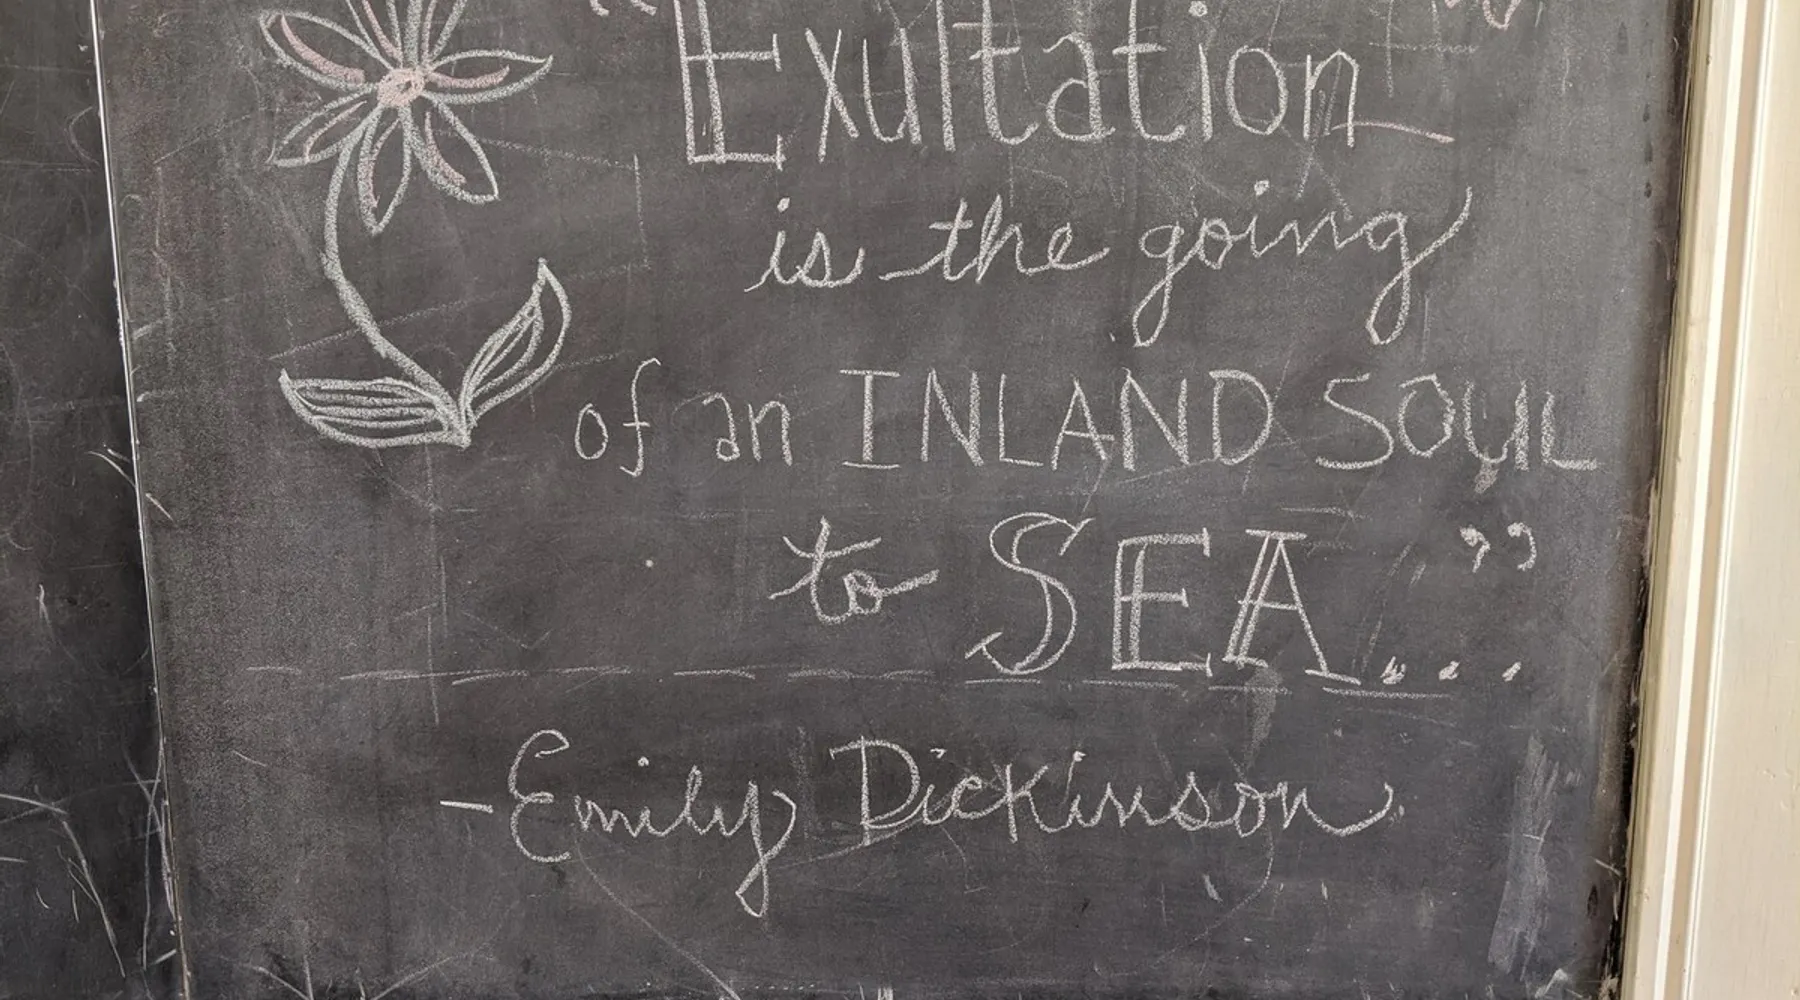 Exultation
is the going
of an INLAND SOUL
to SEA..."
-Emily Dickinson